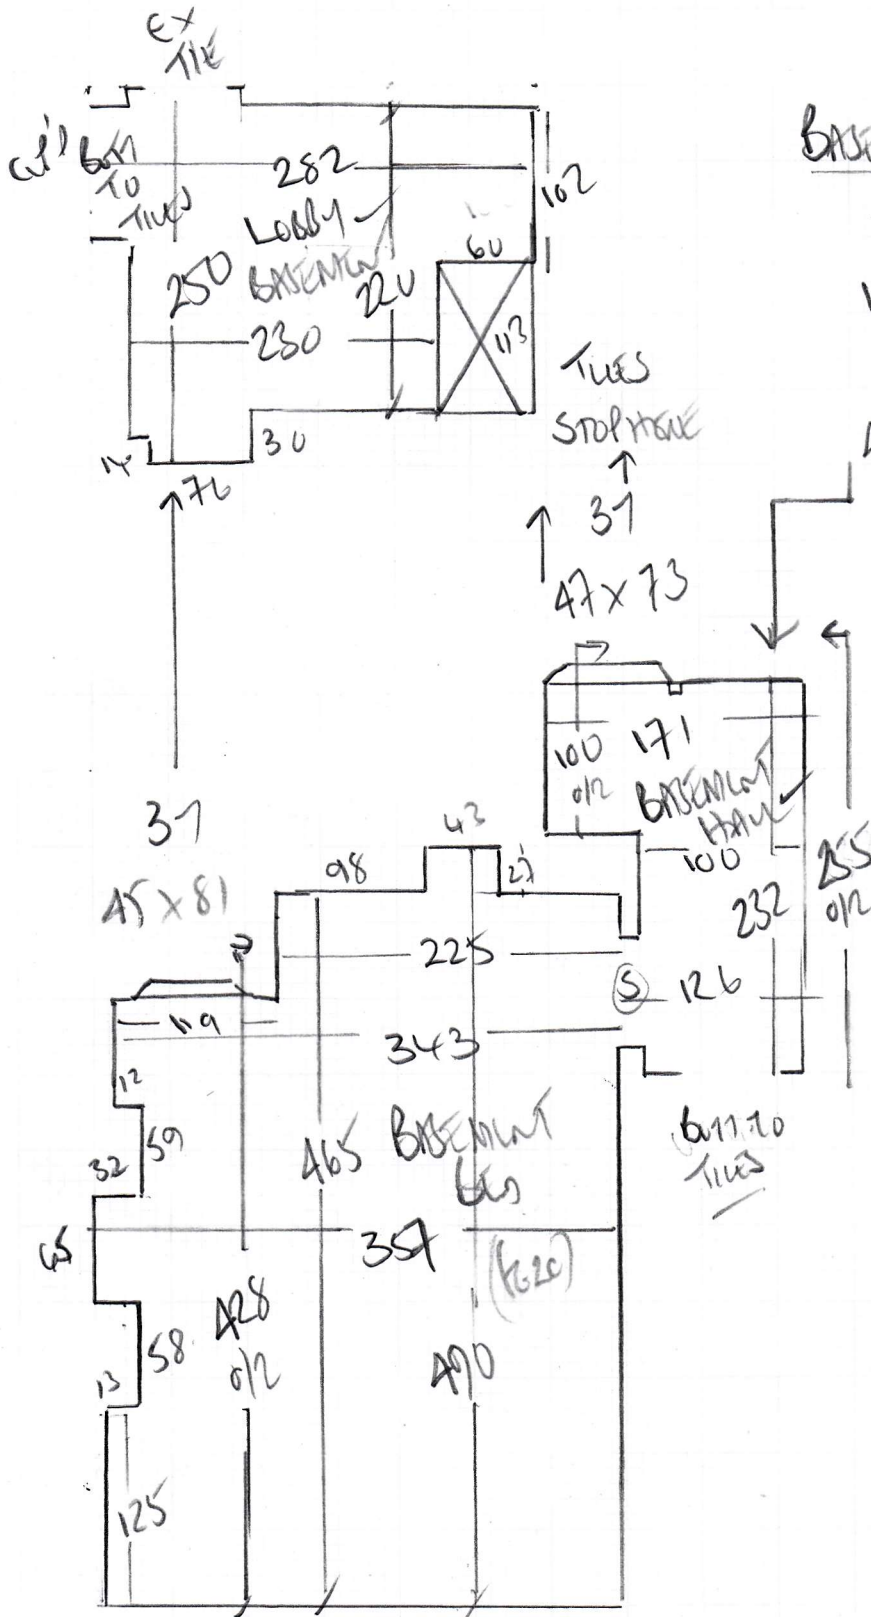 EX
TILE
BUTT
TO
TILES
282
102
LOBBY
BASEMENT
60
250
220
230
113
TILES
STOP HERE
30
14
76
31
47 X 73
BASE
100
0/2
171
BASEMENT
HALL
31
43
98
27
100
255
0/2
45 X 81
232
225
S
126
119
343
12
59
465
BASEMENT
BED
BUTT TO
TILES
32
65
357
428
0/2
58
490
13
125